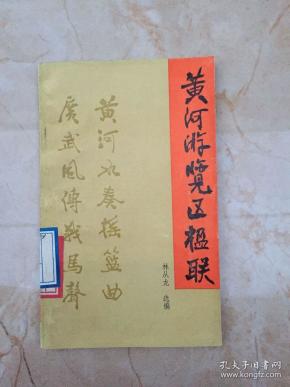 黄河游览区楹联
林从龙 选编
黄河水奏摇篮曲
广武风傳戰馬聲
孔夫子旧书网